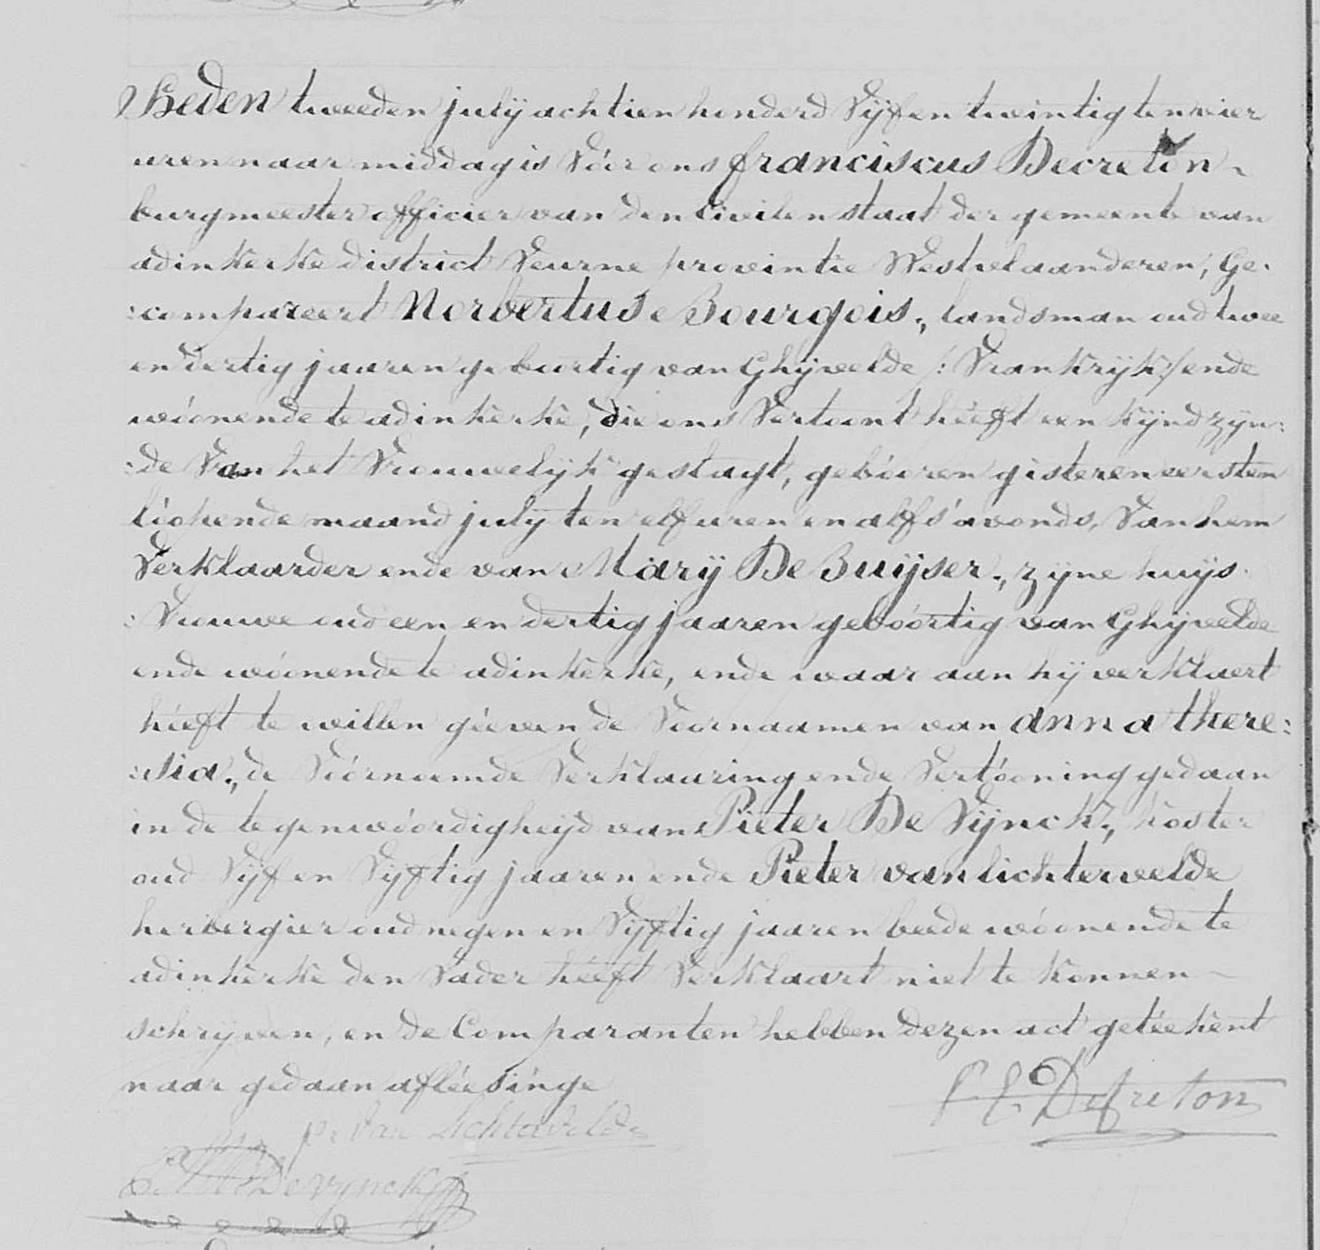 Heden tweeden julij achtien honderd Vijf en twintig ten vier
uren naar middag is Vóór ons franciscus Decreton
burgmeester officier van den Civilen staat der gemeente van
adinkerke district Veurne provintie Westvlaanderen, Ge:
:compareert Norbertus Bourgois, landsman oud twee
en dertig jaaren geburtig van Ghijvelde /: Vrankryk :/ ende
wóonende te adinkerke, die ons Vertoont hééft een kyndzyn:
:de Van het Vrouwelyk geslagt, gebóoren gisteren eersten
lóopende maand julij ten elf uren en alf s'avonds, Van hem
Verklaarder ende van Marij De Buijser, zyne huys:
:Vrouwe oud een en dertig jaaren gebóortig van Ghijvelde
ende wóonende te adinkerke, ende waar aan hij verklaert
hééft te willen géeven de Voornaamen van anna there:
:sia, de Vóórnoemde Verklaaring ende Vertóoning gedaan
in de tegenwóordigheijd van Pieter De Vijnck, koster
oud Vijf en Vijftig jaaren ende Pieter vanlichtervelde
herbergier oud negen en Vijftig jaaren beede wóonende te
adinkerke den Vader hééft Verklaart niet te konnen
schryven, en de Comparanten hebben dezen act getéekent
naar gedaan afléesinge
Decreton
P. Van Lichtervelde
Devynck